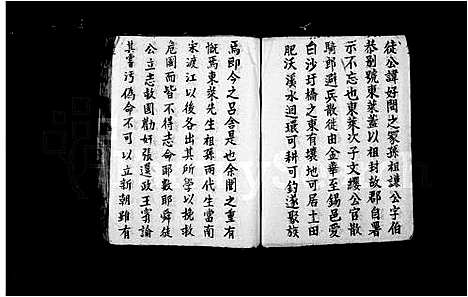 徒公諱好問之冢孫祖謙公字伯
恭別號東萊蓋以祖封故郡自署
示不忘也東萊次子文纓公官散
騎郎避兵散徙由金華至錫邑愛
白沙圩橋之東有壤地可居土田
肥沃溪水迴環可耕可釣遂聚族
焉即今之呂舍是也余聞之重有
慨焉東萊先生祖孫兩代生當南
宋渡江以後各出其所學以挽救
危國而皆不得志命耶數耶舜徒
公立志救國勸奸張邊政王雱論
其嘗污偽命不可以立新朝雖有